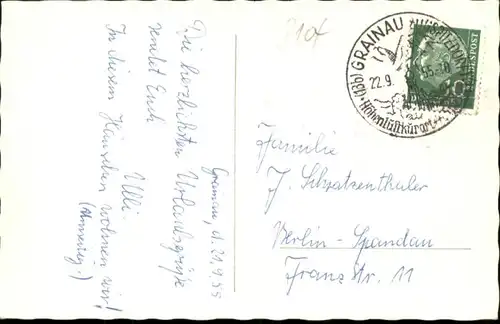 Grainau, d. 21.9.55
Die herzlichsten Urlaubsgrüße
sendet Euch
Ulli.
In diesem Häuschen wohnen wir!
(13b) GRAINAU
22.9.55-10
Höhenluftkurort
DEUTSCHE BUNDESPOST
10
Familie
J. Schatzenthaler
Berlin-Spandau
Franzstr. 11